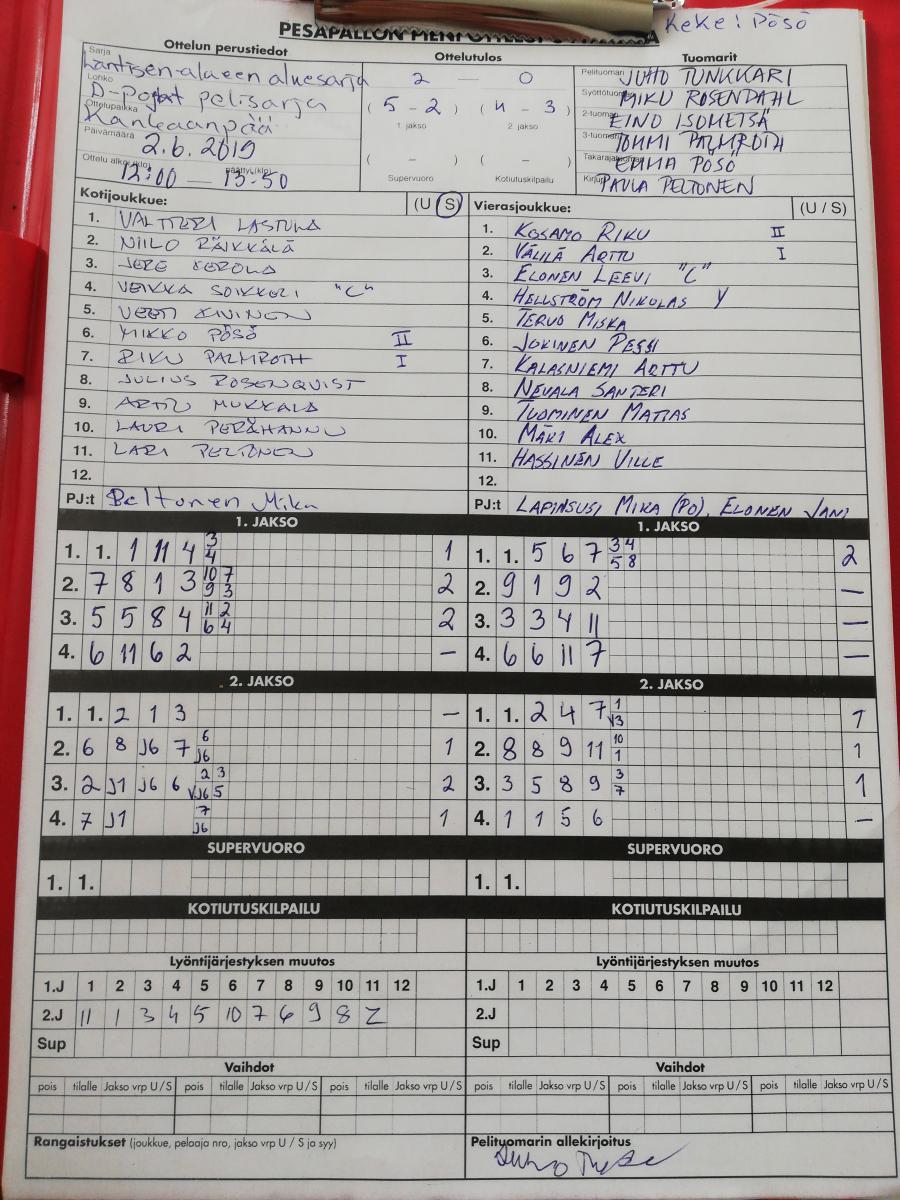 Keke: Pösö
PESÄPALLON
Ottelun perustiedot
Ottelutulos
Tuomarit
Sarja
Läntisen-alueen aluesarja
Lohko
D-pojat pelisarja
Ottelupaikka
Kankaanpää
Päivämäärä
2.6.2019
Ottelu alkoi (klo) päättyi (klo)
12:00 — 13:50
2 — 0
(5 - 2) (4 - 3)
1. jakso 2. jakso
( - ) ( - )
Supervuoro Kotiutuskilpailu
Pelituomari JUHO TUNKKARI
Syöttötuomari MIKU ROSENDAHL
2-tuomari EINO ISOMETSÄ
3-tuomari TOMMI PALMROTH
Takarajatuomari EMMA PÖSÖ
Kirjuri PAULA PELTONEN
Kotijoukkue: (U / S)
1. VALTTERI LASTULA
2. NIILO RÄIKKÄLÄ
3. JERE KEROLA
4. VEIKKA SOIKKELI "C"
5. VEETI KIVINEN
6. MIKKO PÖSÖ II
7. RIKU PALMROTH I
8. JULIUS ROSENQUIST
9. ARTTU MUKKALA
10. LAURI PERÄHANNU
11. LARI PELTONEN
12.
PJ:t Peltonen Mika
Vierasjoukkue: (U / S)
1. KOSAMO RIKU II
2. VÄLILÄ ARTTU I
3. ELONEN LEEVI "C"
4. HELLSTRÖM NIKOLAS Y
5. TERVO MISKA
6. JOKINEN PESSI
7. KALASNIEMI ARTTU
8. NEVALA SANTERI
9. TUOMINEN MATIAS
10. MÄKI ALEX
11. HASSINEN VILLE
12.
PJ:t LAPINSUSI MIKA (PO), ELONEN JANI
1. JAKSO
1. 1. 1 11 4 3 4 1
2. 7 8 1 3 10 7 9 3 2
3. 5 5 8 4 11 2 6 4 2
4. 6 11 6 2 —
1. JAKSO
1. 1. 5 6 7 3 4 5 8 2
2. 9 1 9 2 —
3. 3 3 4 11 —
4. 6 6 11 7 —
2. JAKSO
1. 1. 2 1 3 —
2. 6 8 J6 7 6 J6 1
3. 2 J1 J6 6 2 3 VJ6 5 2
4. 7 J1 7 J6 1
2. JAKSO
1. 1. 2 4 7 1 V3 1
2. 8 8 9 11 10 1 1
3. 3 5 8 9 3 7 1
4. 1 1 5 6 —
SUPERVUORO
1. 1.
SUPERVUORO
1. 1.
KOTIUTUSKILPAILU
KOTIUTUSKILPAILU
Lyöntijärjestyksen muutos
1.J 1 2 3 4 5 6 7 8 9 10 11 12
2.J 11 1 3 4 5 10 7 6 9 8 2
Sup
Lyöntijärjestyksen muutos
1.J 1 2 3 4 5 6 7 8 9 10 11 12
2.J
Sup
Vaihdot
pois tilalle Jakso vrp U / S pois tilalle Jakso vrp U / S pois tilalle Jakso vrp U / S
Vaihdot
pois tilalle Jakso vrp U / S pois tilalle Jakso vrp U / S pois tilalle Jakso vrp U / S
Rangaistukset (joukkue, pelaaja nro, jakso vrp U / S ja syy)
Pelituomarin allekirjoitus